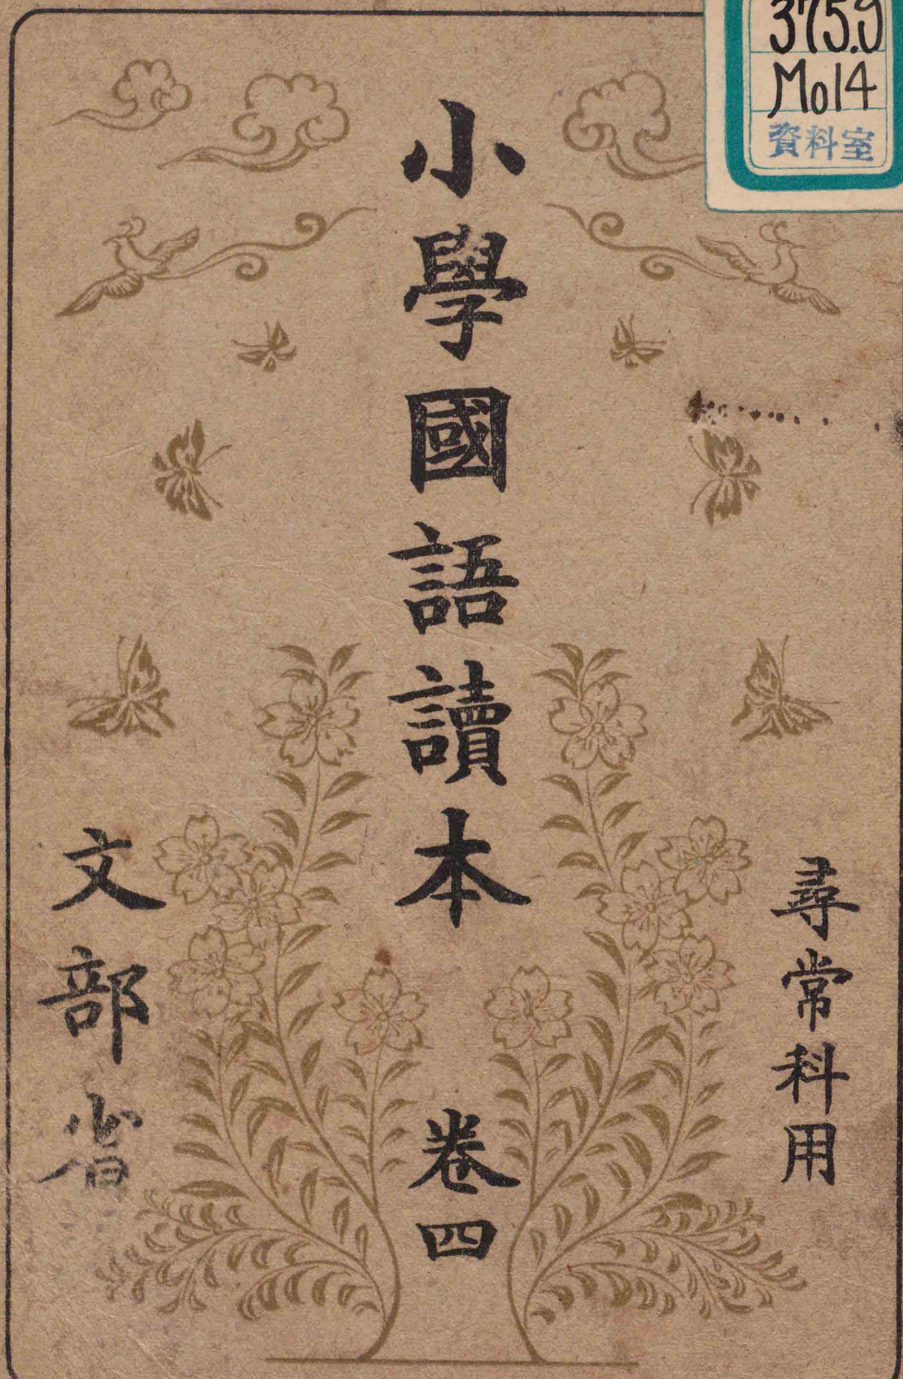 375.9
Mo14
資料室
尋常科用
小學國語讀本 卷四
文部省